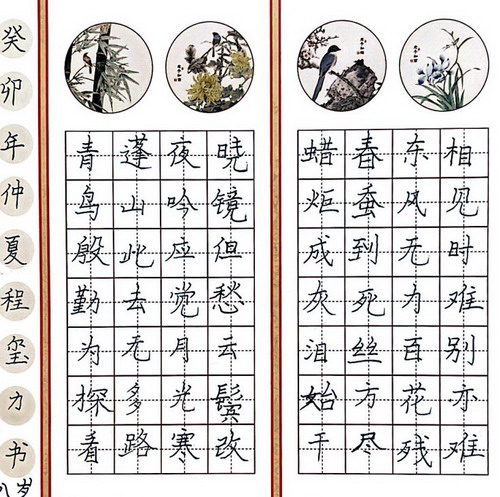 相见时难别亦难
东风无为百花残
春蚕到死丝方尽
蜡炬成灰泪始干
晓镜但愁云鬓改
夜吟应觉月光寒
蓬山此去无多路
青鸟殷勤为探看
癸卯年仲夏程玺力书
八岁